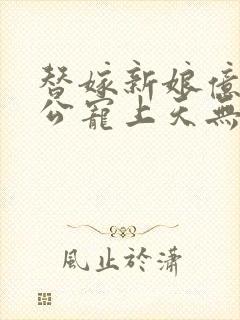 替嫁新娘億
公寵上天無
風止於瀟